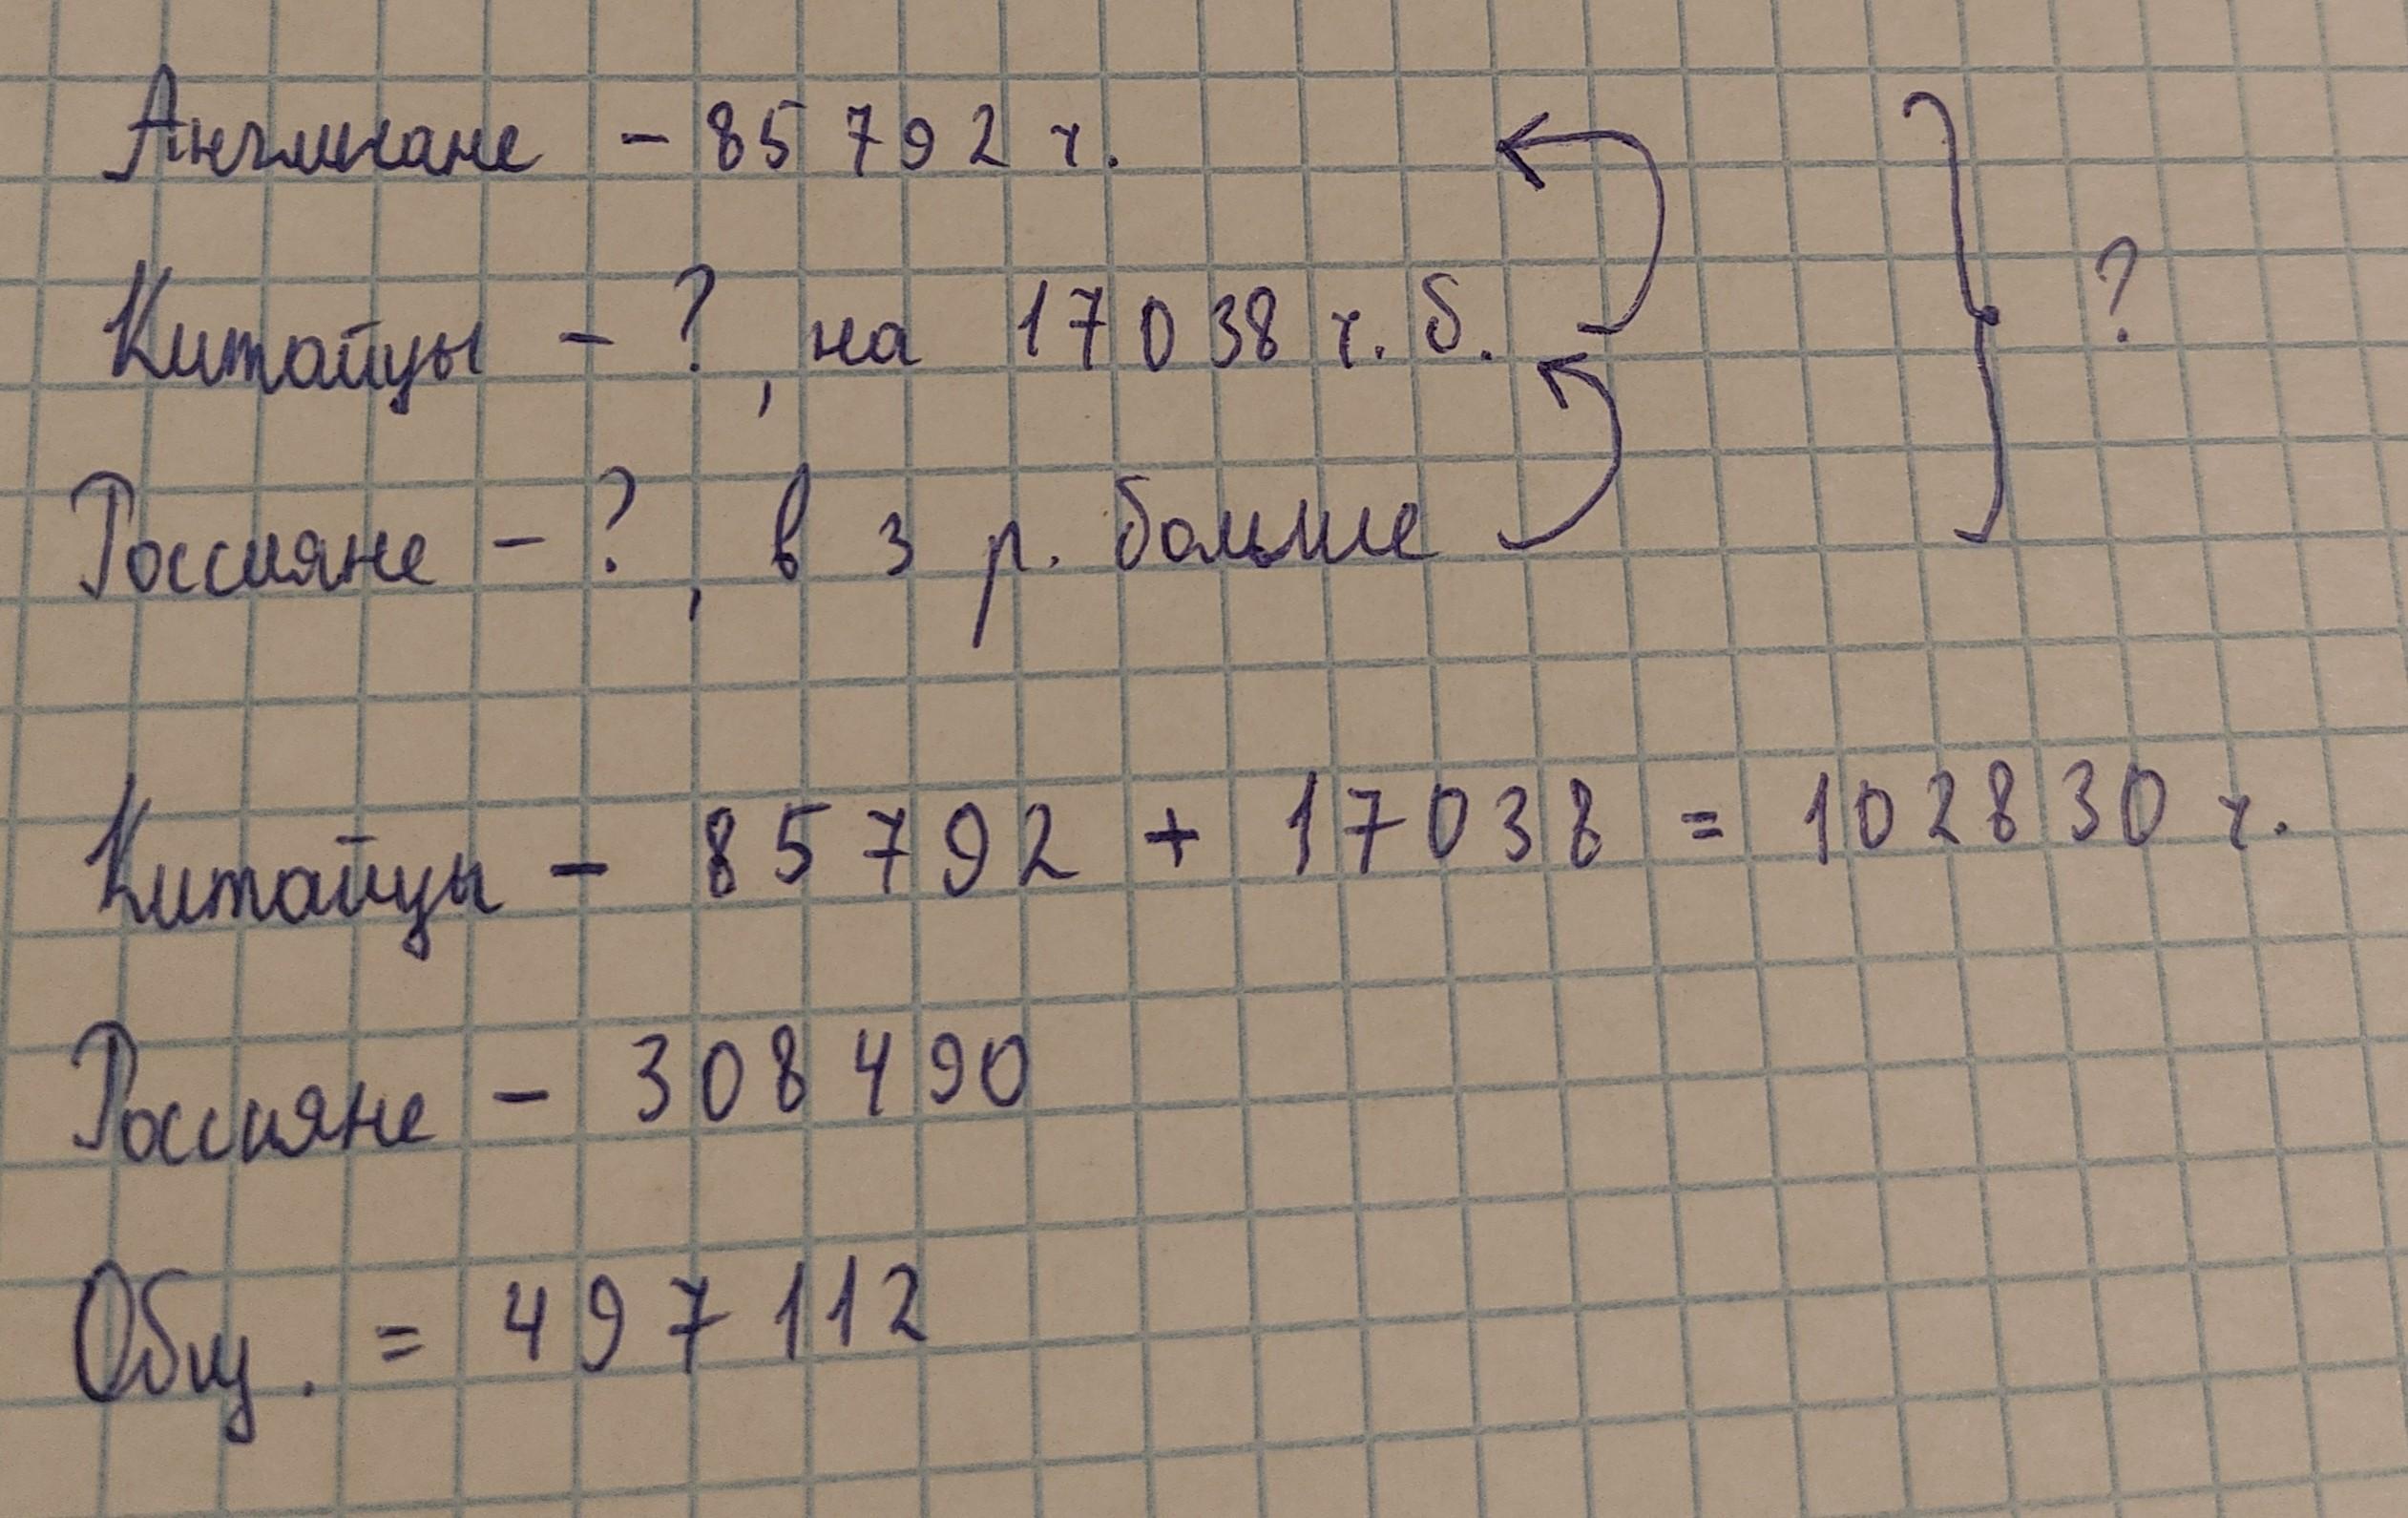 Англичане - 85792 ч.
Китайцы - ?, на 17038 ч. б.
?
Россияне - ?, в 3 р. больше
Китайцы - 85792 + 17038 = 102830 ч.
Россияне - 308490
Общ. = 497112